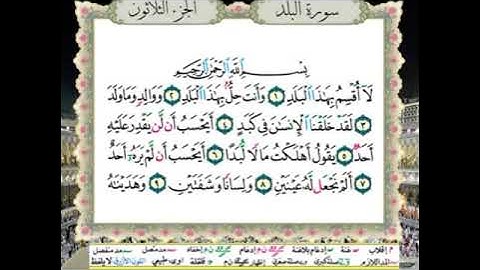 سورة البلد
الجزء الثلاثون
بِسْمِ اللَّهِ الرَّحْمَٰنِ الرَّحِيمِ
لَآ أُقْسِمُ بِهَٰذَا الْبَلَدِ ١ وَأَنتَ حِلٌّۢ بِهَٰذَا الْبَلَدِ ٢ وَوَالِدٍ وَمَا وَلَدَ
٣ لَقَدْ خَلَقْنَا الْإِنسَٰنَ فِى كَبَدٍ ٤ أَيَحْسَبُ أَن لَّن يَقْدِرَ عَلَيْهِ
أَحَدٌ ٥ يَقُولُ أَهْلَكْتُ مَالًا لُّبَدًا ٦ أَيَحْسَبُ أَن لَّمْ يَرَهُۥٓ أَحَدٌ
٧ أَلَمْ نَجْعَل لَّهُۥ عَيْنَيْنِ ٨ وَلِسَانًا وَشَفَتَيْنِ ٩ وَهَدَيْنَٰهُ